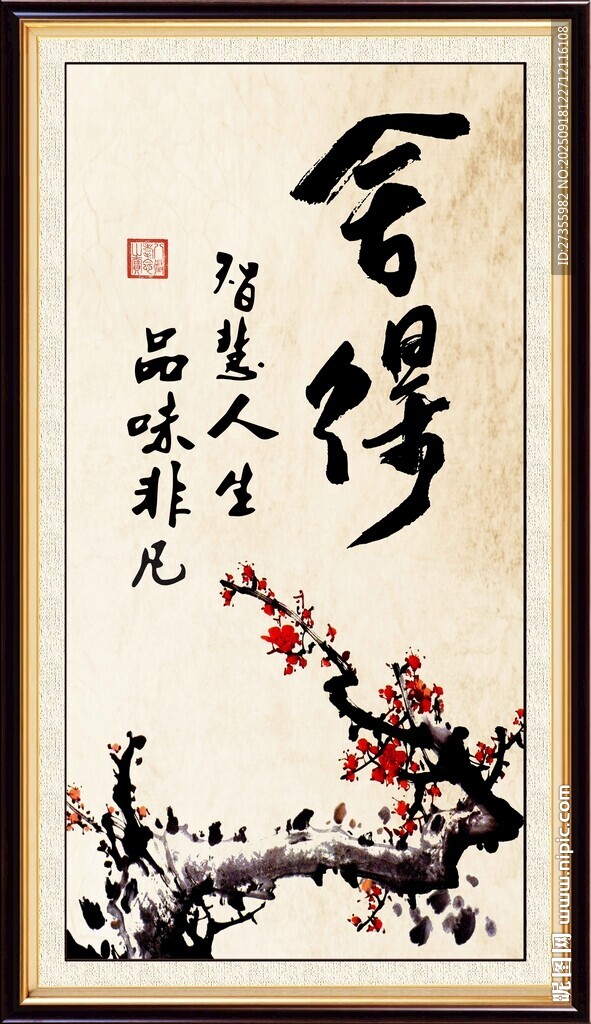 舍得
智慧人生
品味非凡
ID:27355982 NO:20250918122712116108
昵图网 www.nipic.com